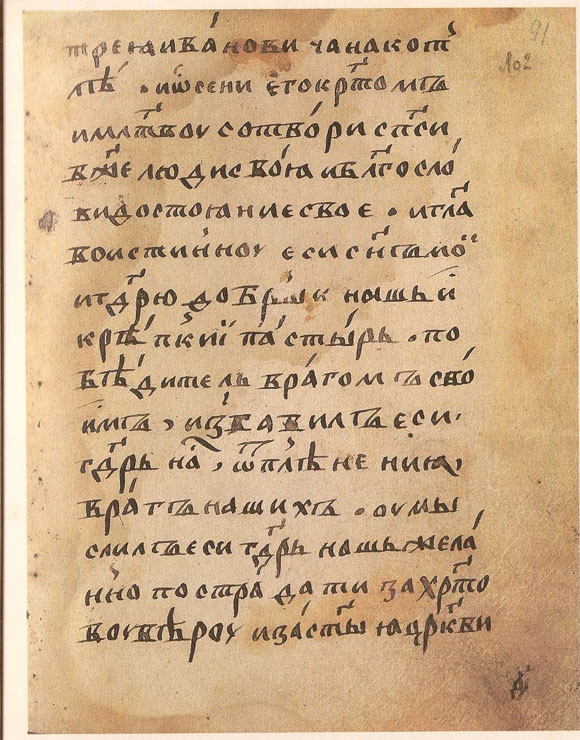 91
102
трениива́нови чанакопт
лѣ́ · иѡ҆сени его крⷭ҇томъ
имлт҃воу сотво́ри спⷭ҇и
бж҃е люди своѧ̀ иблгⷭ҇осло́
видостоꙗниесвое · игл҃а
воистинноу еси сн҃ъмоӥ
игдⷭ҇рю добрыи нашь и
крѣ́пкии па́стырь · по
бѣ́дитель враго́мъ сво́
имъ , избавилъеси ·
гдⷭ҇рь на , ѿплѣнениꙗ ,
бра́тънашихъ · оумы
слилъеси гдⷭ҇рь нашь жела́
нно постра́дати захрⷭ҇то
воувѣроу иза ст҃ыꙗ црк҃ви